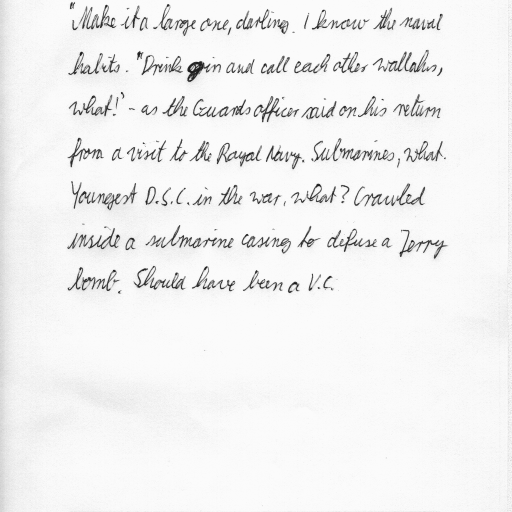 "Make it a large one, darling. I know the naval
habits. "Drink gin and call each other wallahs,
what!' - as the Guards officer said on his return
from a visit to the Royal Navy. Submarines, what.
Youngest D.S.C. in the war, what? Crawled
inside a submarine casing to defuse a Jerry
bomb. Should have been a V.C.